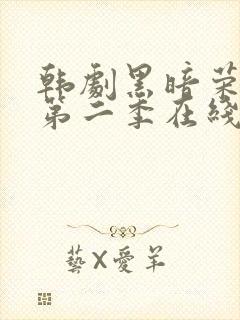 韩劇黑暗荣
第二季在綫
藝X愛羊